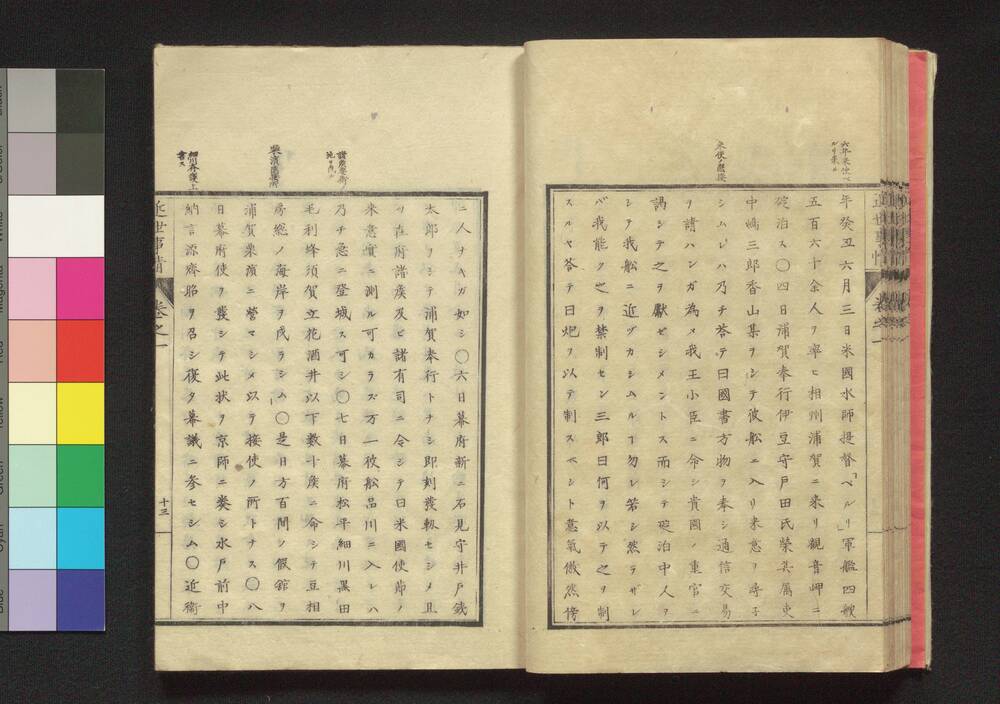 年癸丑六月三日米國水師提督「ペルリ」軍艦四艘
五百六十余人ヲ率ヒ相州浦賀ニ来リ観音岬ニ
碇泊ス〇四日浦賀奉行伊豆守戸田氏榮其属吏
中嶋三郎香山集ヲシテ彼舩ニ入リ来意ヲ尋子
シムレハ乃チ答テ曰國書方物ヲ奉シ通信交易
ヲ請ハンガ為メ我王小臣ニ命シ貴國ノ重官ニ
謁シテ之ヲ獻ゼシメントス而シテ碇泊中人ヲ
シテ我舩ニ近ヅカシムルヿ勿レ若シ然ラザレ
バ我能ク之ヲ禁制セン三郎曰何ヲ以テ之ヲ制
スルヤ答テ曰炮ヲ以テ制スベシト意氣傲然傍
ニ人ナキガ如シ〇六日幕府新ニ石見守井戸鐵
太郎ヲシテ浦賀奉行トナシ即刻發軔セシメ且
ツ在府諸矦及ヒ諸有司ニ令シテ曰米國使節ノ
来意實ニ測ル可カラズ万一彼舩品川ニ入レハ
乃チ急ニ登城ス可シ〇七日幕府松平細川黒田
毛利蜂須賀立花酒井以下數十矦ニ命シテ豆相
房總ノ海岸ヲ戍ラシム〇是日方百間ノ假舘ヲ
浦賀栗濱ニ營マシメ以テ接使ノ所トナス〇八
日幕府使ヲ發シテ此状ヲ京師ニ奏シ水戸前中
納言源齊昭ヲ召シ復タ幕議ニ参セシム〇近衛
近世事情
巻之一
十三